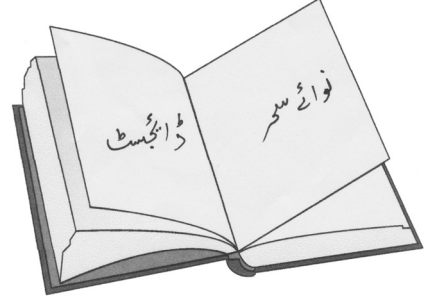 نوائے سحر
ڈائجسٹ